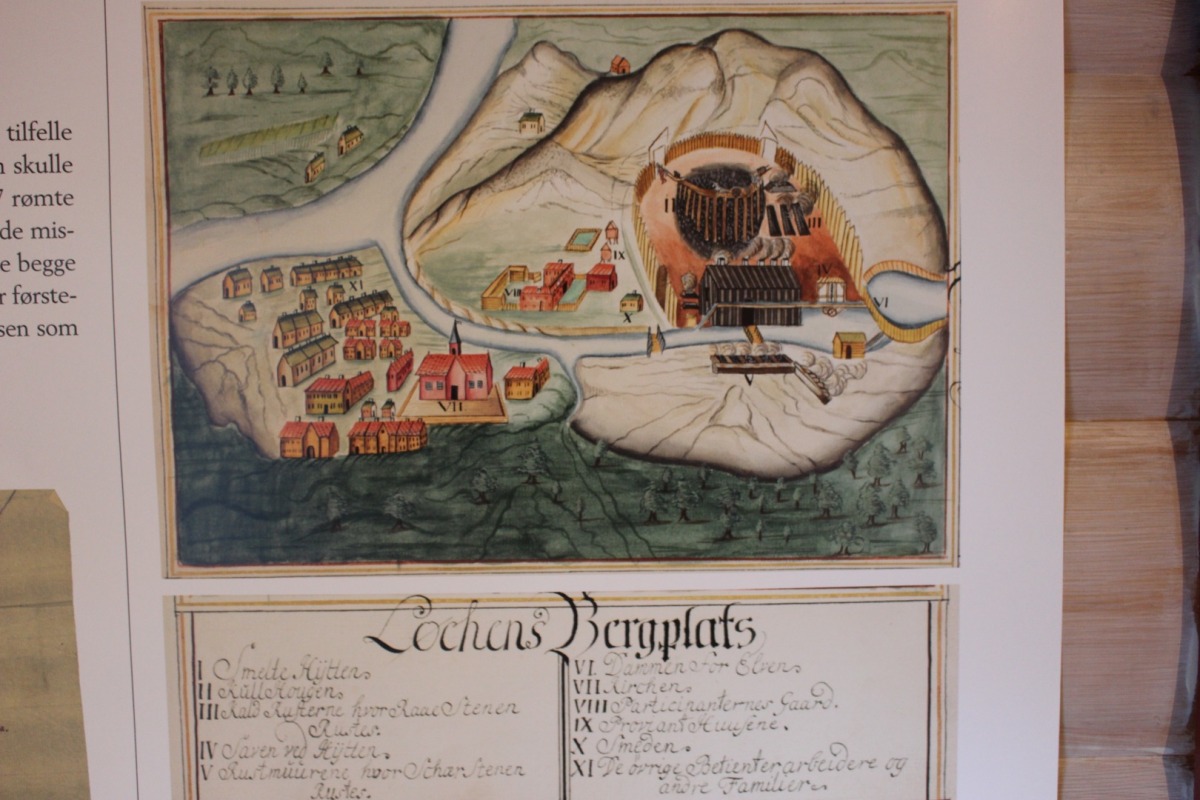 tilfelle
skulle
7 rømte
de mis-
e begge
r første-
sen som
II
III
IX
IV
VI
XI
X
V
VII
Lochens Bergplats
I Smelte Hÿtten.
II Küll Hougen.
III Kald Rusterne hvor Raae Stenen
Rustes.
IV Saven ved Hÿtten.
V Rustmuurene hvor Schær Stenen
Rustes.
VI. Dammen for Elven.
VII Kirchen.
VIII Participanternes Gaard.
IX Proviant Huusene.
X Smeden.
XI De øvrige Betienter arbeidere og
andre Familier.